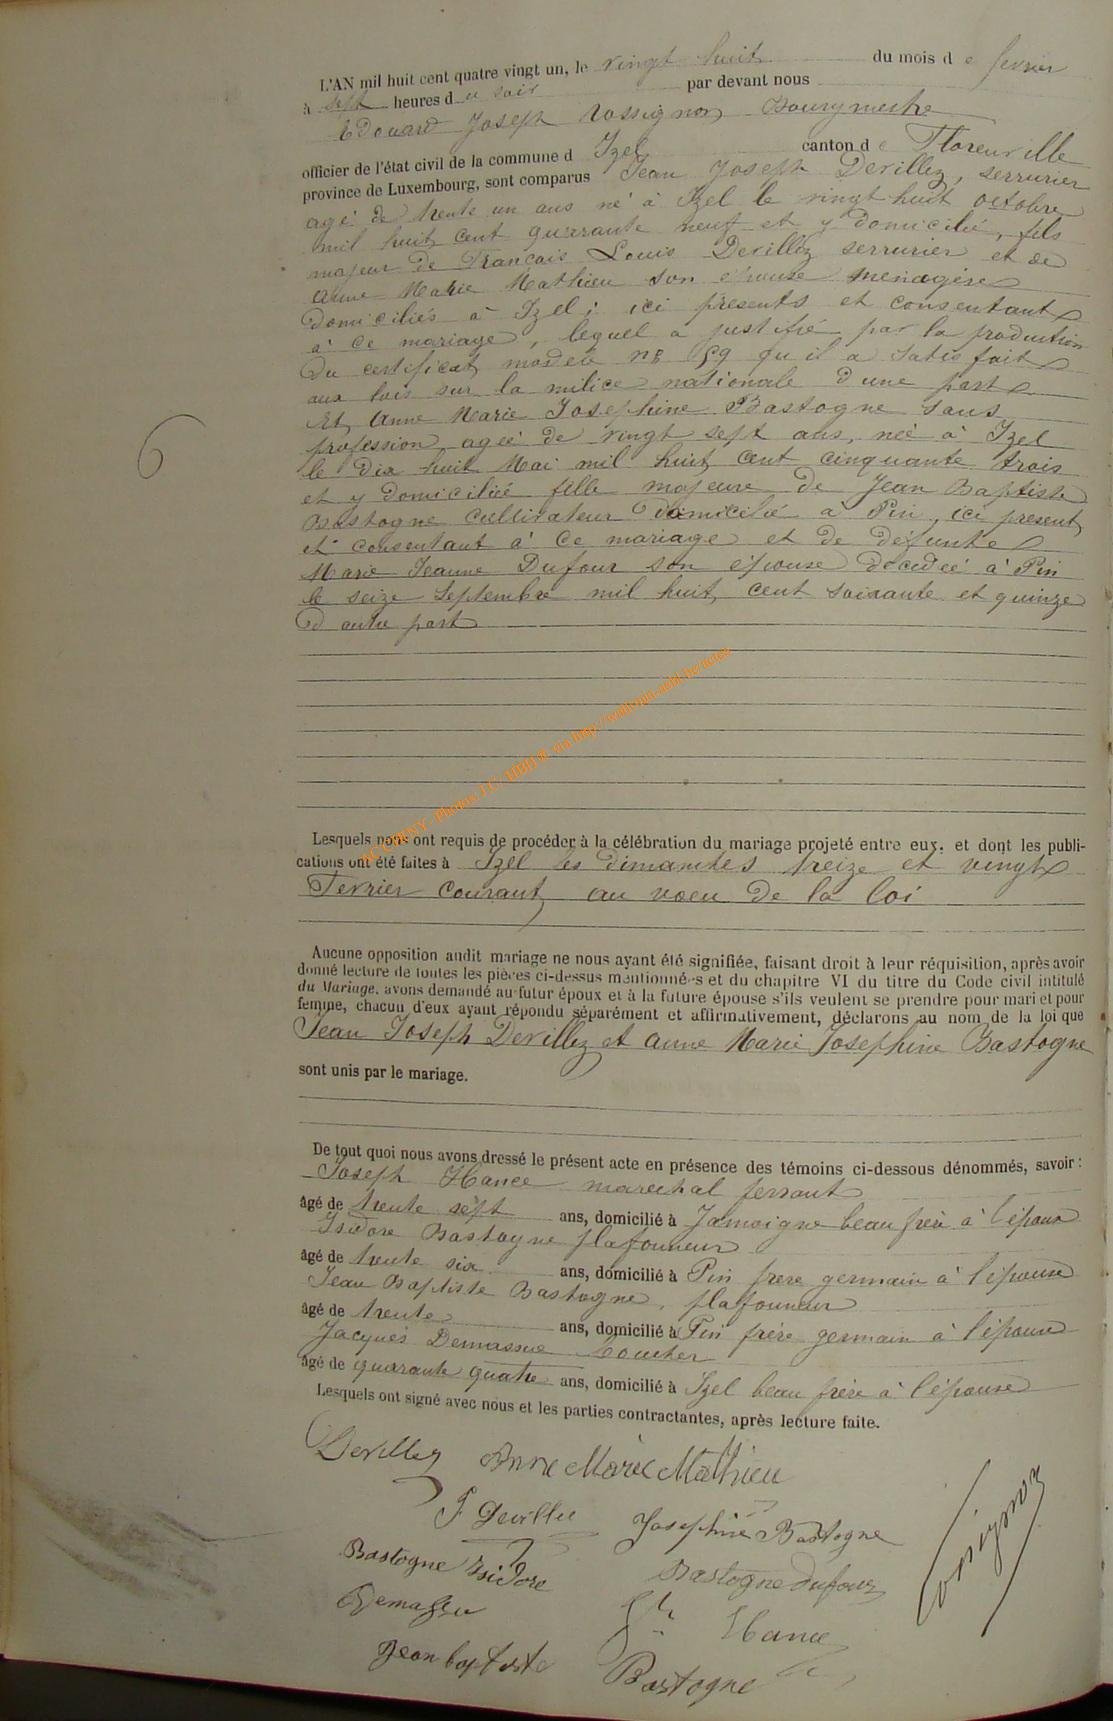 L'AN mil huit cent quatre vingt un, le vingt huit du mois de fevrier
à sept heures du soir par devant nous
Edouard Joseph Rossignon Bourgmestre
officier de l'état civil de la commune d Izel canton de Florenville
province de Luxembourg, sont comparus Jean Joseph Devillez, serrurier
agé de trente un ans né à Izel le vingt huit octobre
mil huit cent quarante neuf et y domicilié, fils
majeur de Francois Louis Devillez serrurier et de
Anne Marie Mathieu son épouse menagère
domiciliés à Izel; ici présents et consentant
à ce mariage, lequel a justifié par la production
du certificat modele 59 qu il a satisfait
aux lois sur la milice nationale d une part
Et Anne Marie Josephine Bastogne sans
profession agée de vingt sept ans, née à Izel
le dix huit Mai mil huit cent cinquante trois
et y domiciliée fille majeure de Jean Baptiste
Bastogne cultivateur domicilié à Pin, ici present
et consentant à ce mariage et de défunte
Marie Jeanne Dufour son épouse décédée à Pin
le seize Septembre mil huit cent soixante et quinze
d autre part
6
ACCORNY - Photos via
Lesquels nous ont requis de procéder à la célébration du mariage projeté entre eux, et dont les publi-
cations ont été faites à Izel les dimanches treize et vingt
Fevrier courant, au voeu de la loi
Aucune opposition audit mariage ne nous ayant été signifiée, faisant droit à leur réquisition, après avoir
donné lecture de toutes les pièces ci-dessus mentionnées et du chapitre VI du titre du Code civil intitulé
du Mariage, avons demandé au futur époux et à la future épouse s'ils veulent se prendre pour mari et pour
femme, chacun d'eux ayant répondu séparément et affirmativement, déclarons au nom de la loi que
Jean Joseph Devillez et Anne Marie Josephine Bastogne
sont unis par le mariage.
De tout quoi nous avons dressé le présent acte en présence des témoins ci-dessous dénommés, savoir:
Joseph Hance marechal ferrant
âgé de trente sept ans, domicilié à Jamoigne beau frère à l'époux
Isidore Bastogne plafonneur
âgé de trente six ans, domicilié à Pin frere germain à l'épouse
Jean Baptiste Bastogne, plafonneur
âgé de trente ans, domicilié à Pin frère germain à l'épouse
Jacques Demassue boucher
âgé de quarante quatre ans, domicilié à Izel beau frère à l'épouse
Lesquels ont signé avec nous et les parties contractantes, après lecture faite.
Devillez Anne Marie Mathieu
F Devillez Josephine Bastogne
Bastogne Isidore Bastogne Dufour
Rossignon
Demassu Hance
Jean baptiste Bastogne